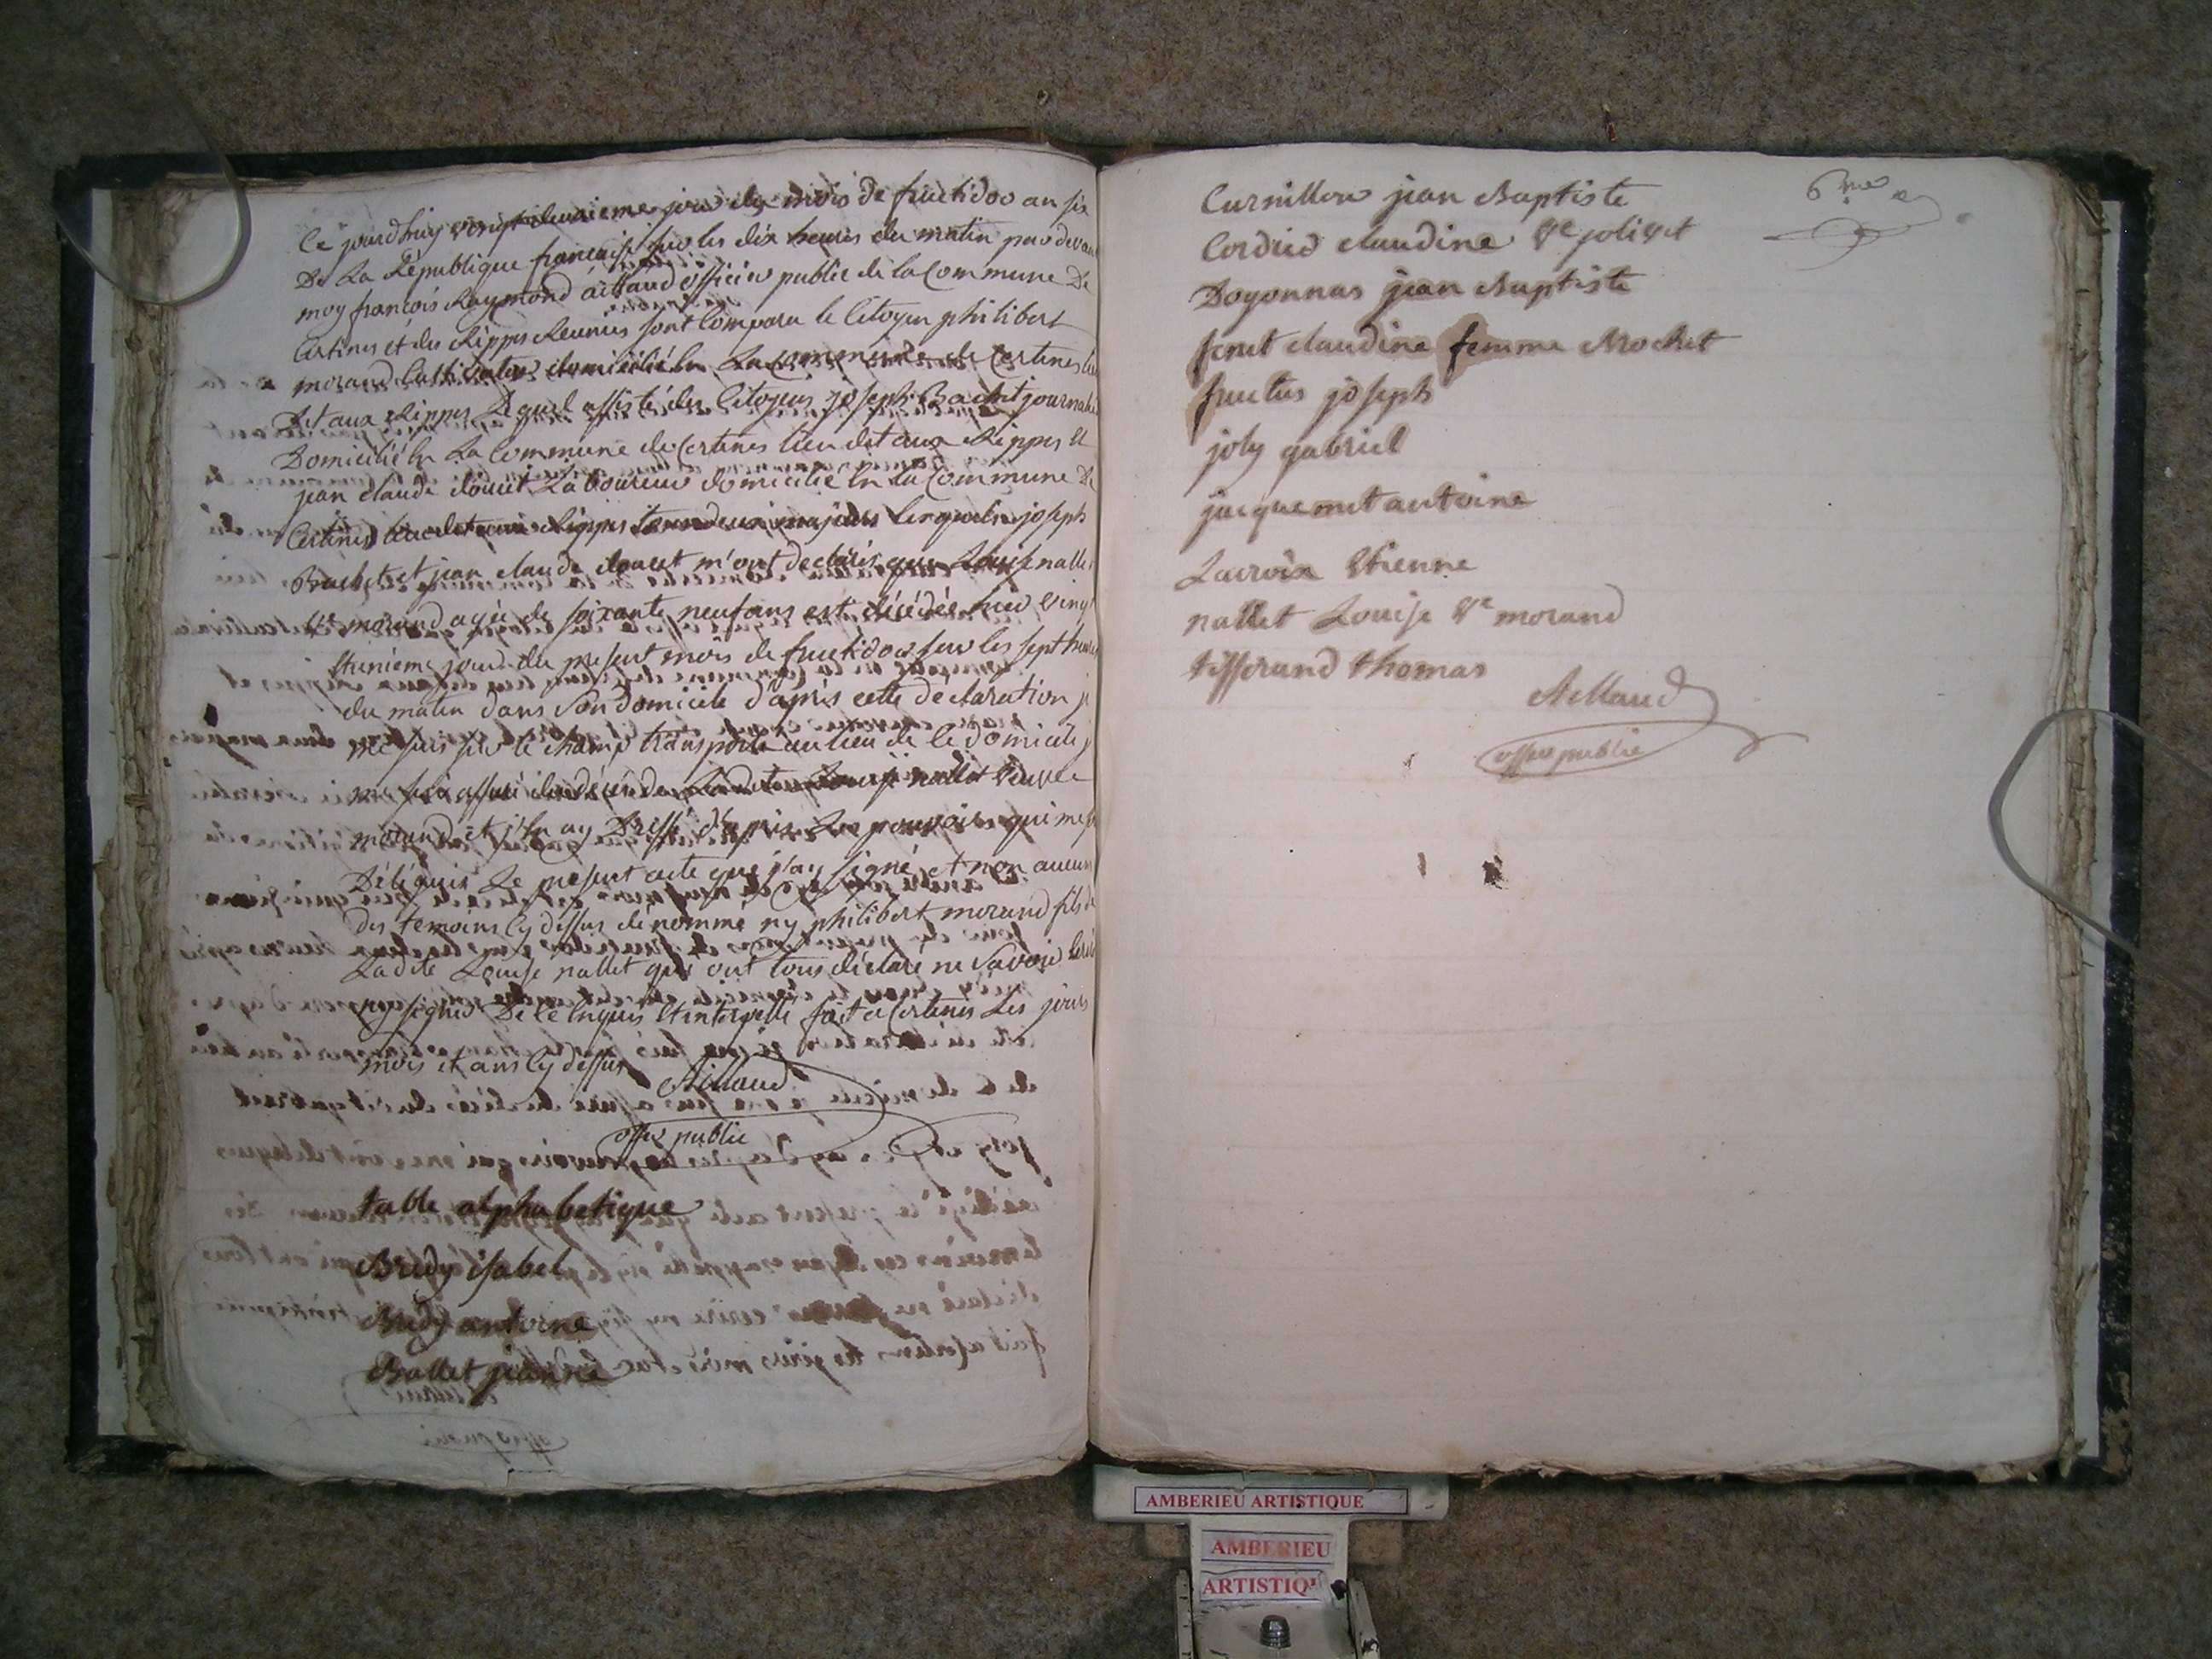 Ce jourdhuy vingt deuxieme jour du mois de fructidor an six
De La Republique francaise sur les dix heures du matin par devan
moy françois Raymond aillaud officier public de la Commune De
Certines et des Rippes Reunies sont Comparu le Citoyen philibert
morand Cultivateur domicilié En La Commune de Certines lieu
Dit aux Rippes Lequel assisté des Citoyens joseph Bachet journalie
Domicilié En La Commune de Certines lieu dit aux Rippes et
jean claude doucet Laboureur domicilié En La Commune De
Certines lieu dit aux Rippes tous deux majeurs lesquels joseph
Bachet et jean claude doucet m'ont declarés que Louise nallet
Ve morand agée de soixante neuf ans est décédée hier vingt
Et unième jour du present mois de fructidor sur les sept heures
du matin dans son domicile d'après cette declaration j
me suis sur le champ transporté au lieu de ce domicile j
me suis assuré du décés de Ladite Louise nallet veuve
morand et j'En ay Dressé d'après Les pouvoirs qui me s
Délégués Le present acte que j'ay signé et non aucun
des temoins Cy dessus dénommé ny philibert morand fils de
Ladite Louise nallet qui ont tous déclaré ne savoir Ecri
ny signer De ce Enquis Et interpellé fait a Certines Les jours
mois et ans Cy dessus
Aillaud
offer public
table alphabetique
Bredy isabel
Bredy antoine
Ballet jeanne
6me
Curnillon jean Baptiste
Cordier claudine Ve jolivet
Doyonnas jean Baptiste
feret claudine femme Brochet
fructus joseph
joly gabriel
jacquemet antoine
Lacroix Etienne
nallet Louise Ve morand
tisserand thomas
Aillaud
offer public
AMBERIEU ARTISTIQUE
AMBERIEU
ARTISTIQU